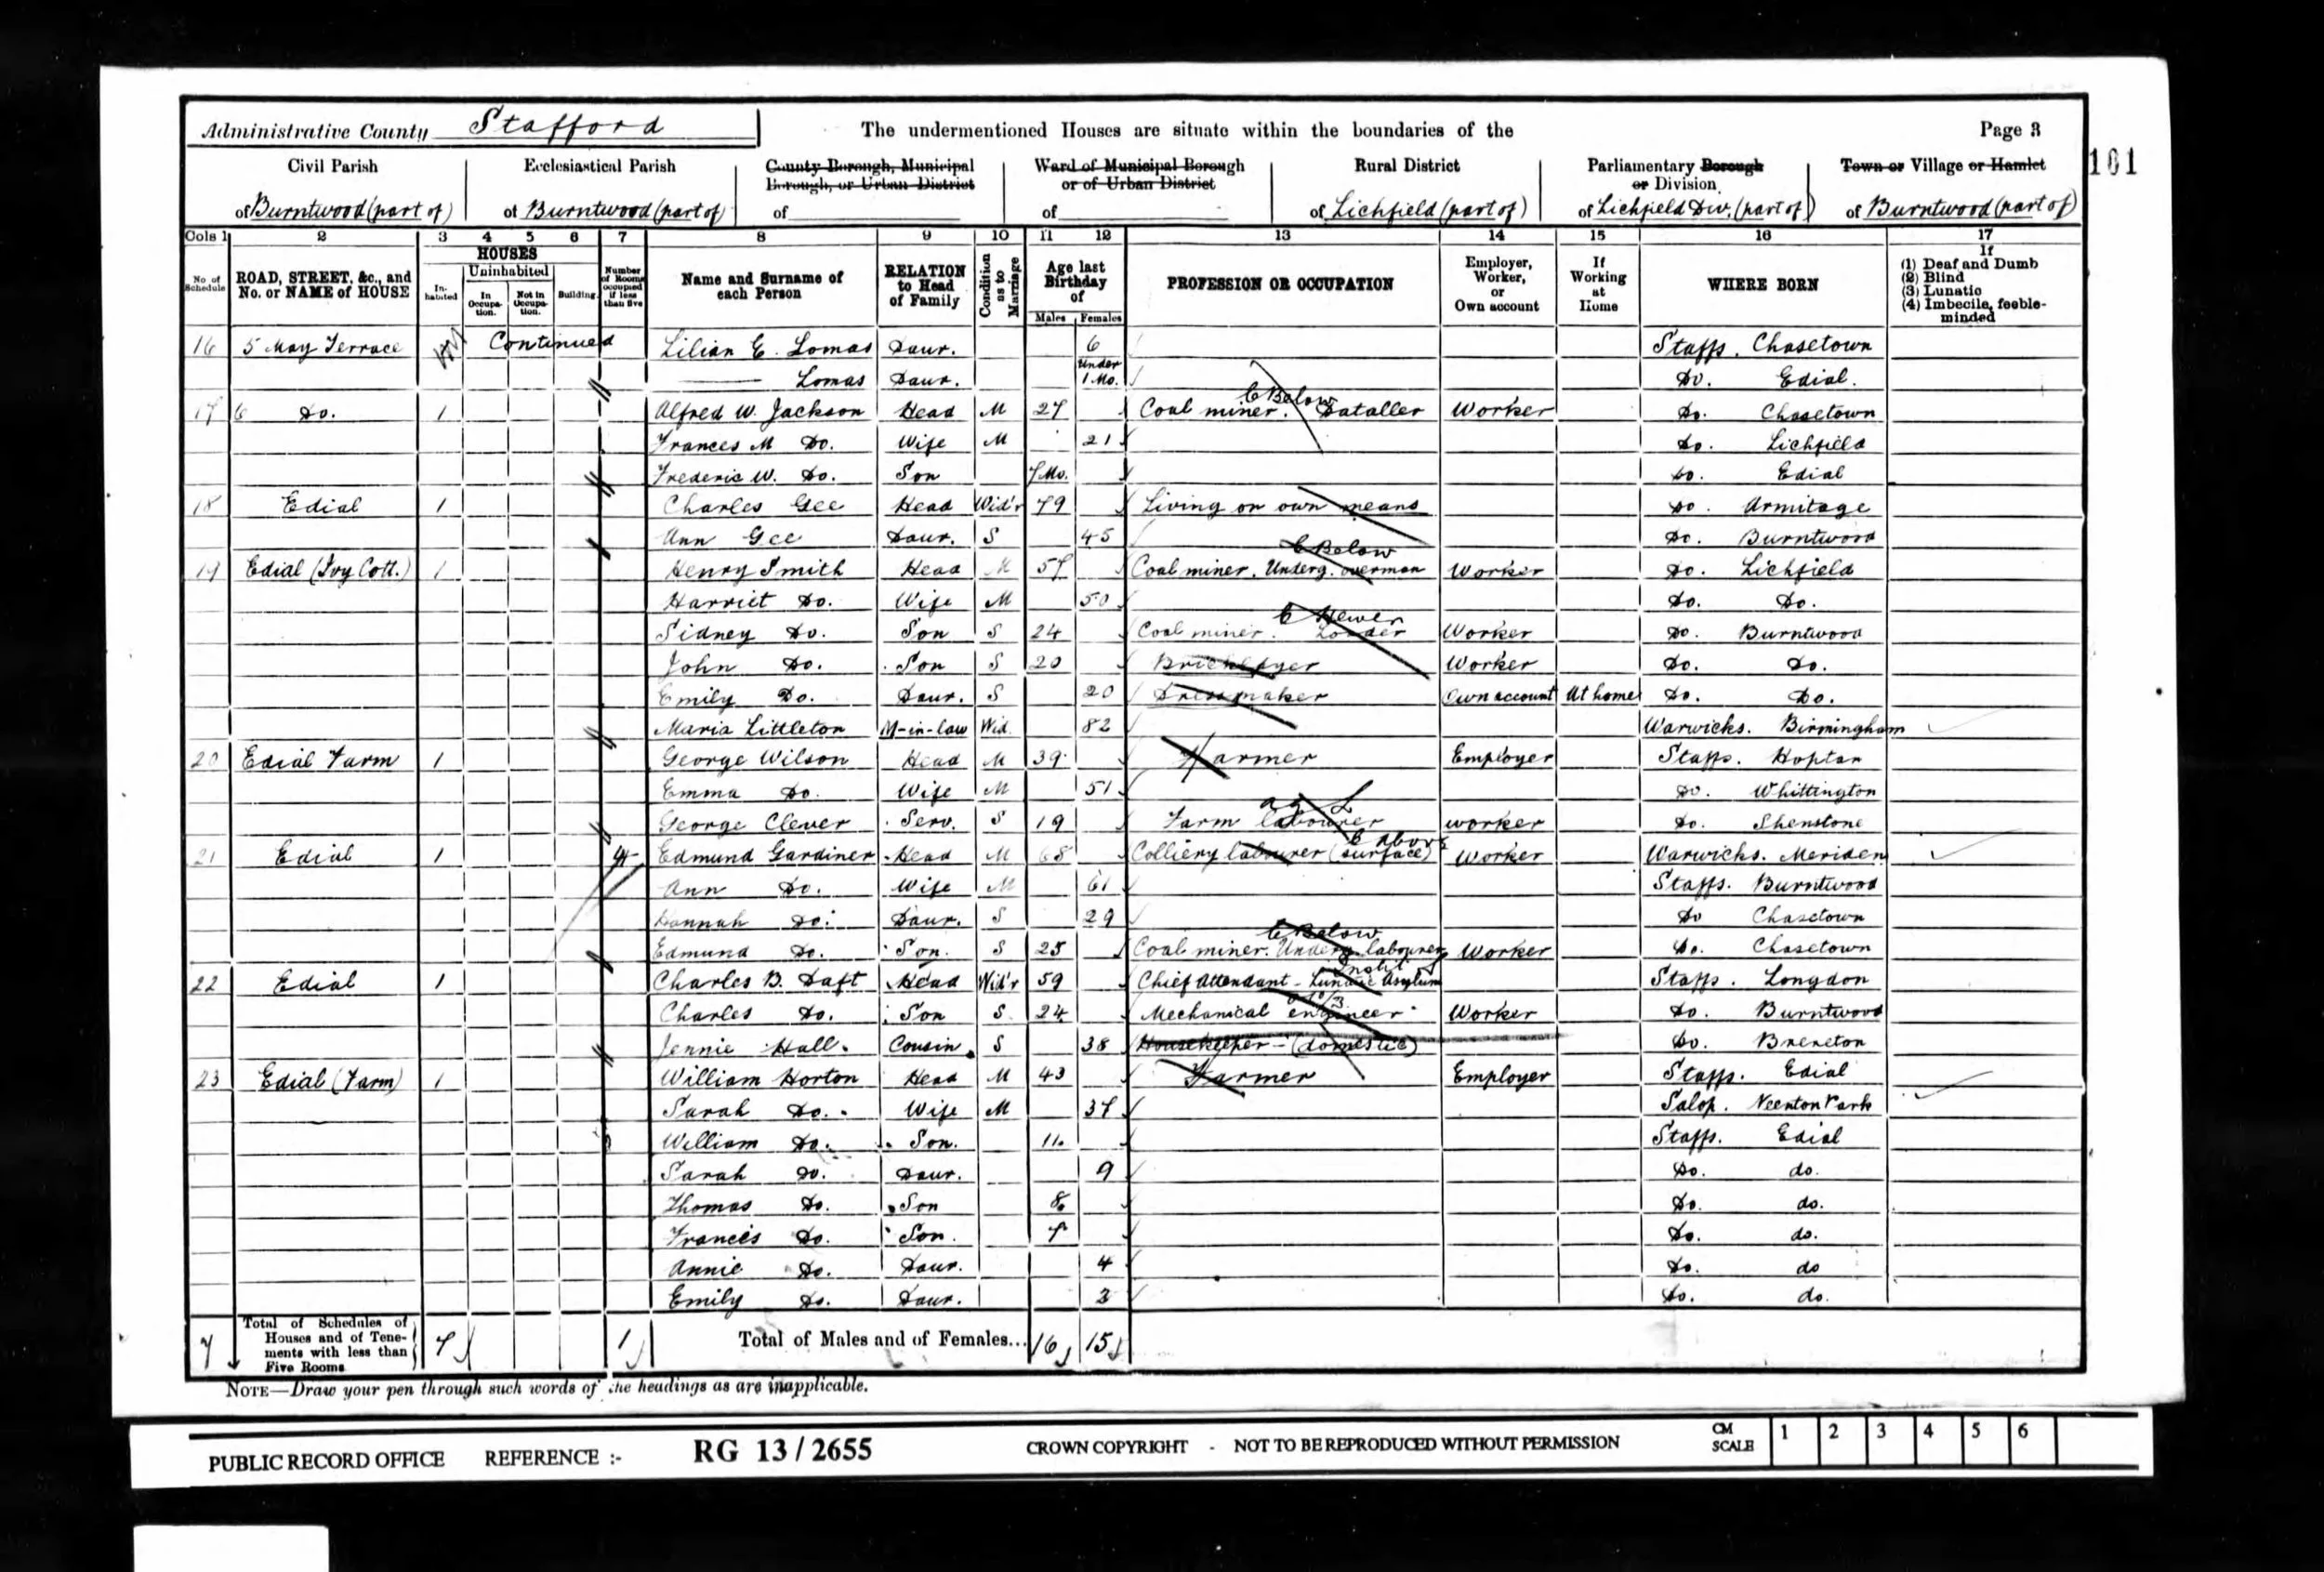 Administrative County Stafford The undermentioned Houses are situate within the boundaries of the Page 3
101
Civil Parish Ecclesiastical Parish County Borough, Municipal Borough, or Urban District Ward of Municipal Borough or of Urban District Rural District Parliamentary Borough or Division Town or Village or Hamlet
of Burntwood (part of) of Burntwood (part of) of of of Lichfield (part of) of Lichfield Div. (part of) of Burntwood (part of)
Cols 1 2 3 4 5 6 7 8 9 10 11 12 13 14 15 16 17
No of Schedule ROAD, STREET, &c., and No. or NAME of HOUSE HOUSES Inhabited Uninhabited In Occupation. Not in Occupation. Building. Number of Rooms occupied if less than five Name and Surname of each Person RELATION to Head of Family Condition as to Marriage Age last Birthday of Males Females PROFESSION OR OCCUPATION Employer, Worker, or Own account If Working at Home WHERE BORN If (1) Deaf and Dumb (2) Blind (3) Lunatic (4) Imbecile, feeble-minded
16 5 May Terrace Continued Lilian E. Lomas Daur. 6 Staffs. Chasetown
Lomas Daur. Under 1 Mo. Do. Edial.
17 6 Do. 1 Alfred W. Jackson Head M 27 Coal miner. Dataller Below Worker Do. Chasetown
Frances M Do. Wife M 21 Do. Lichfield
Frederic W. Do. Son 7 Mo. Do. Edial
18 Edial 1 Charles Gee Head Wid'r 79 Living on own means Do. Armitage
Ann Gee Daur. S 45 Do. Burntwood
19 Edial (Ivy Cott.) 1 Henry Smith Head M 57 Coal miner. Underg. overman Below Worker Do. Lichfield
Harriet Do. Wife M 50 Do. Do.
Sidney Do. Son S 24 Coal miner. Loader Hewer Worker Do. Burntwood
John Do. Son S 20 Bricklayer Worker Do. Do.
Emily Do. Daur. S 20 Dressmaker Own account At home Do. Do.
Maria Littleton M-in-law Wid. 82 Warwicks. Birmingham
20 Edial Farm 1 George Wilson Head M 39 Farmer Employer Staffs. Hopton
Emma Do. Wife M 51 Do. Whittington
George Clever Serv. S 19 Farm labourer ag L Worker Do. Shenstone
21 Edial 1 4 Edmund Gardiner Head M 68 Colliery labourer (surface) Above Worker Warwicks. Meriden
Ann Do. Wife M 61 Staffs. Burntwood
Hannah Do. Daur. S 29 Do Chasetown
Edmund Do. Son. S 25 Coal miner. Underg. labourer Below Worker Do. Chasetown
22 Edial 1 Charles B. Daft Head Wid'r 59 Chief Attendant - Lunatic Asylum Staffs. Longdon
Charles Do. Son S 24 Mechanical engineer Worker Do. Burntwood
Jennie Hall. Cousin S 38 Housekeeper - (domestic) Do. Brereton
23 Edial (Farm) 1 William Horton Head M 43 Farmer Employer Staffs. Edial
Sarah Do. Wife M 37 Salop. Neenton Park
William Do. Son. 11 Staffs. Edial
Sarah Do. Daur. 9 Do. do.
Thomas Do. Son 8 Do. do.
Francis Do. Son. 7 Do. do.
Annie Do. Daur. 4 Do. do
Emily Do. Daur. 2 Do. do.
7 Total of Schedules of Houses and of Tenements with less than Five Rooms 7 1 Total of Males and of Females... 16 15
NOTE—Draw your pen through such words of the headings as are inapplicable.
PUBLIC RECORD OFFICE REFERENCE :- RG 13/2655 CROWN COPYRIGHT - NOT TO BE REPRODUCED WITHOUT PERMISSION CM SCALE 1 2 3 4 5 6